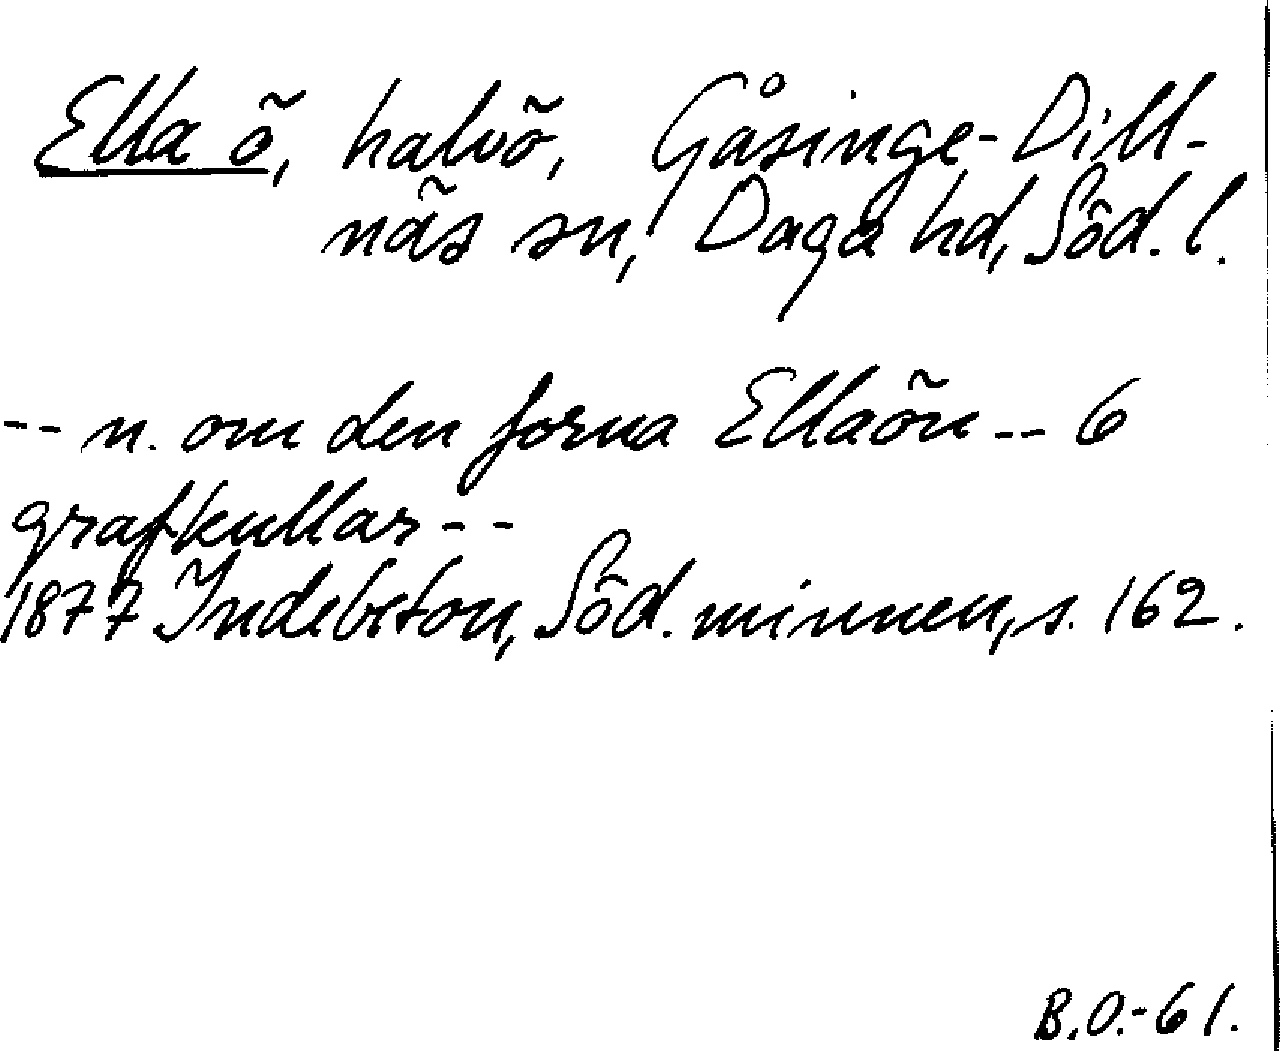 Ella ö, halvö, Gåsinge-Dill-
näs sn, Daga hd, Söd. l.
-- n. om den forna Ellaön -- 6
grafkullar --
1877 Indebetou, Söd. minnen, s. 162.
B.O.-61.